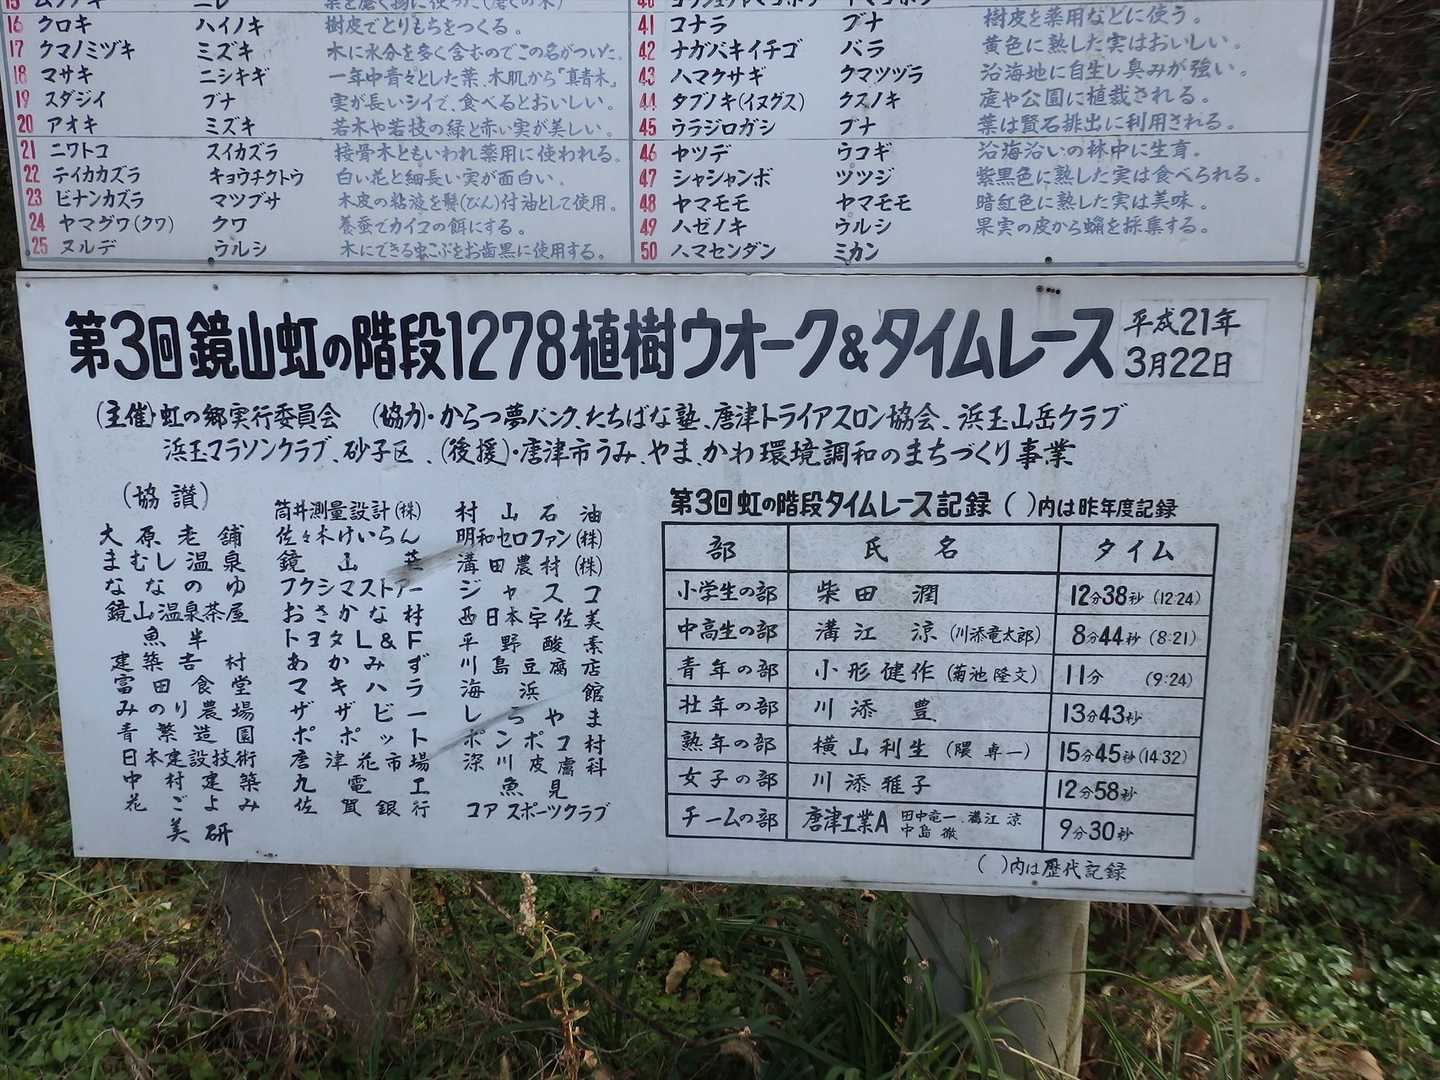 16 クロキ ハイノキ 樹皮でとりもちをつくる。
17 クマノミヅキ ミズキ 木に水分を多く含むのでこの名がついた。
18 マサキ ニシキギ 一年中青々とした葉、木肌から"真青木"
19 スダジイ ブナ 実が長いシイで、食べるとおいしい。
20 アオキ ミズキ 若木や若技の緑と赤い実が美しい。
21 ニワトコ スイカズラ 接骨木ともいわれ薬用に使われる。
22 テイカカズラ キョウチクトウ 白い花と細長い実が面白い。
23 ビナンカズラ マツブサ 木皮の粘液を鬢(びん)付油として使用。
24 ヤマグワ(クワ) クワ 養蚕でカイコの餌にする。
25 ヌルデ ウルシ 木にできる虫こぶをお歯黒に使用する。
41 コナラ ブナ 樹皮を薬用などに使う。
42 ナガバキイチゴ バラ 黄色に熟した実はおいしい。
43 ハマクサギ クマツヅラ 沿海地に自生し臭みが強い。
44 タブノキ(イヌグス) クスノキ 庭や公園に植裁される。
45 ウラジロガシ ブナ 葉は腎石排出に利用される。
46 ヤツデ ウコギ 沿海沿いの林中に生育。
47 シャシャンボ ツツジ 紫黒色に熟した実は食べられる。
48 ヤマモモ ヤマモモ 暗紅色に熟した実は美味。
49 ハゼノキ ウルシ 果実の皮から蝋を採集する。
50 ハマセンダン ミカン
第3回鏡山虹の階段1278植樹ウオーク&タイムレース 平成21年
3月22日
(主催)虹の郷実行委員会 (協力)・からつ夢バンク、たちばな塾、唐津トライアスロン協会、浜玉山岳クラブ
浜玉マラソンクラブ、砂子区、(後援)・唐津市うみ、やま、かわ環境調和のまちづくり事業
(協讃)
大原老舗
まむし温泉
ななのゆ
鏡山温泉茶屋
魚半
建築吉村
富田食堂
みのり農場
青繁造園
日本建設技術
中村建築
花ごよみ
美研
筒井測量設計(株)
佐々木けいらん
鏡山
フクシマストアー
おさかな村
トヨタL&F
あかみず
マキハラ
ザザビー
ポポット
唐津花市場
九電工
佐賀銀行
村山石油
明和セロファン(株)
溝田農材(株)
ジャスコ
西日本宇佐美
平野酸素
川島豆腐店
海浜館
しろやま
ポンポコ村
深川皮膚科
魚見
コアスポーツクラブ
第3回虹の階段タイムレース記録 ( )内は昨年度記録
部 氏名 タイム
小学生の部 柴田潤 12分38秒(12:24)
中高生の部 溝江涼(川添竜太郎) 8分44秒(8:21)
青年の部 小形健作(菊池隆文) 11分 (9:24)
壮年の部 川添豊 13分43秒
熟年の部 横山利生(隈専一) 15分45秒(14:32)
女子の部 川添雅子 12分58秒
チームの部 唐津工業A 田中竜一、溝江涼 中島徹 9分30秒
( )内は歴代記録